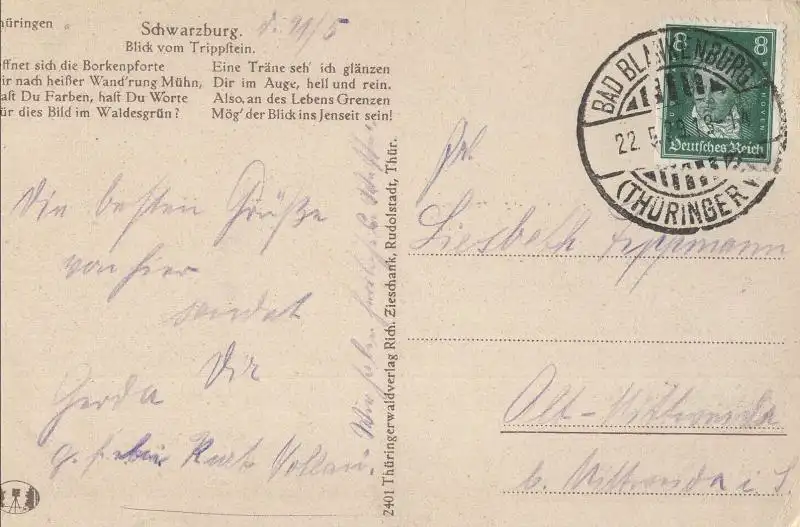 Thüringen
Schwarzburg.
Blick vom Trippstein.
Öffnet sich die Borkenpforte
Dir nach heißer Wand'rung Mühn,
Hast Du Farben, hast Du Worte
Für dies Bild im Waldesgrün?
Eine Träne seh' ich glänzen
Dir im Auge, hell und rein.
Also, an des Lebens Grenzen
Mög' der Blick ins Jenseit sein!
Die besten Grüße
von hier
sendet
Dir
Gerda
Kurt
2401 Thüringerwaldverlag Rich. Zieschank, Rudolstadt, Thür.
8 8
BEETHOVEN
Deutsches Reich
BAD BLANKENBURG
22. 5.
(THÜRINGERW.)
Frl.
Liesbeth Lippmann
Alt-Mittweida
b. Mittweida i. S.